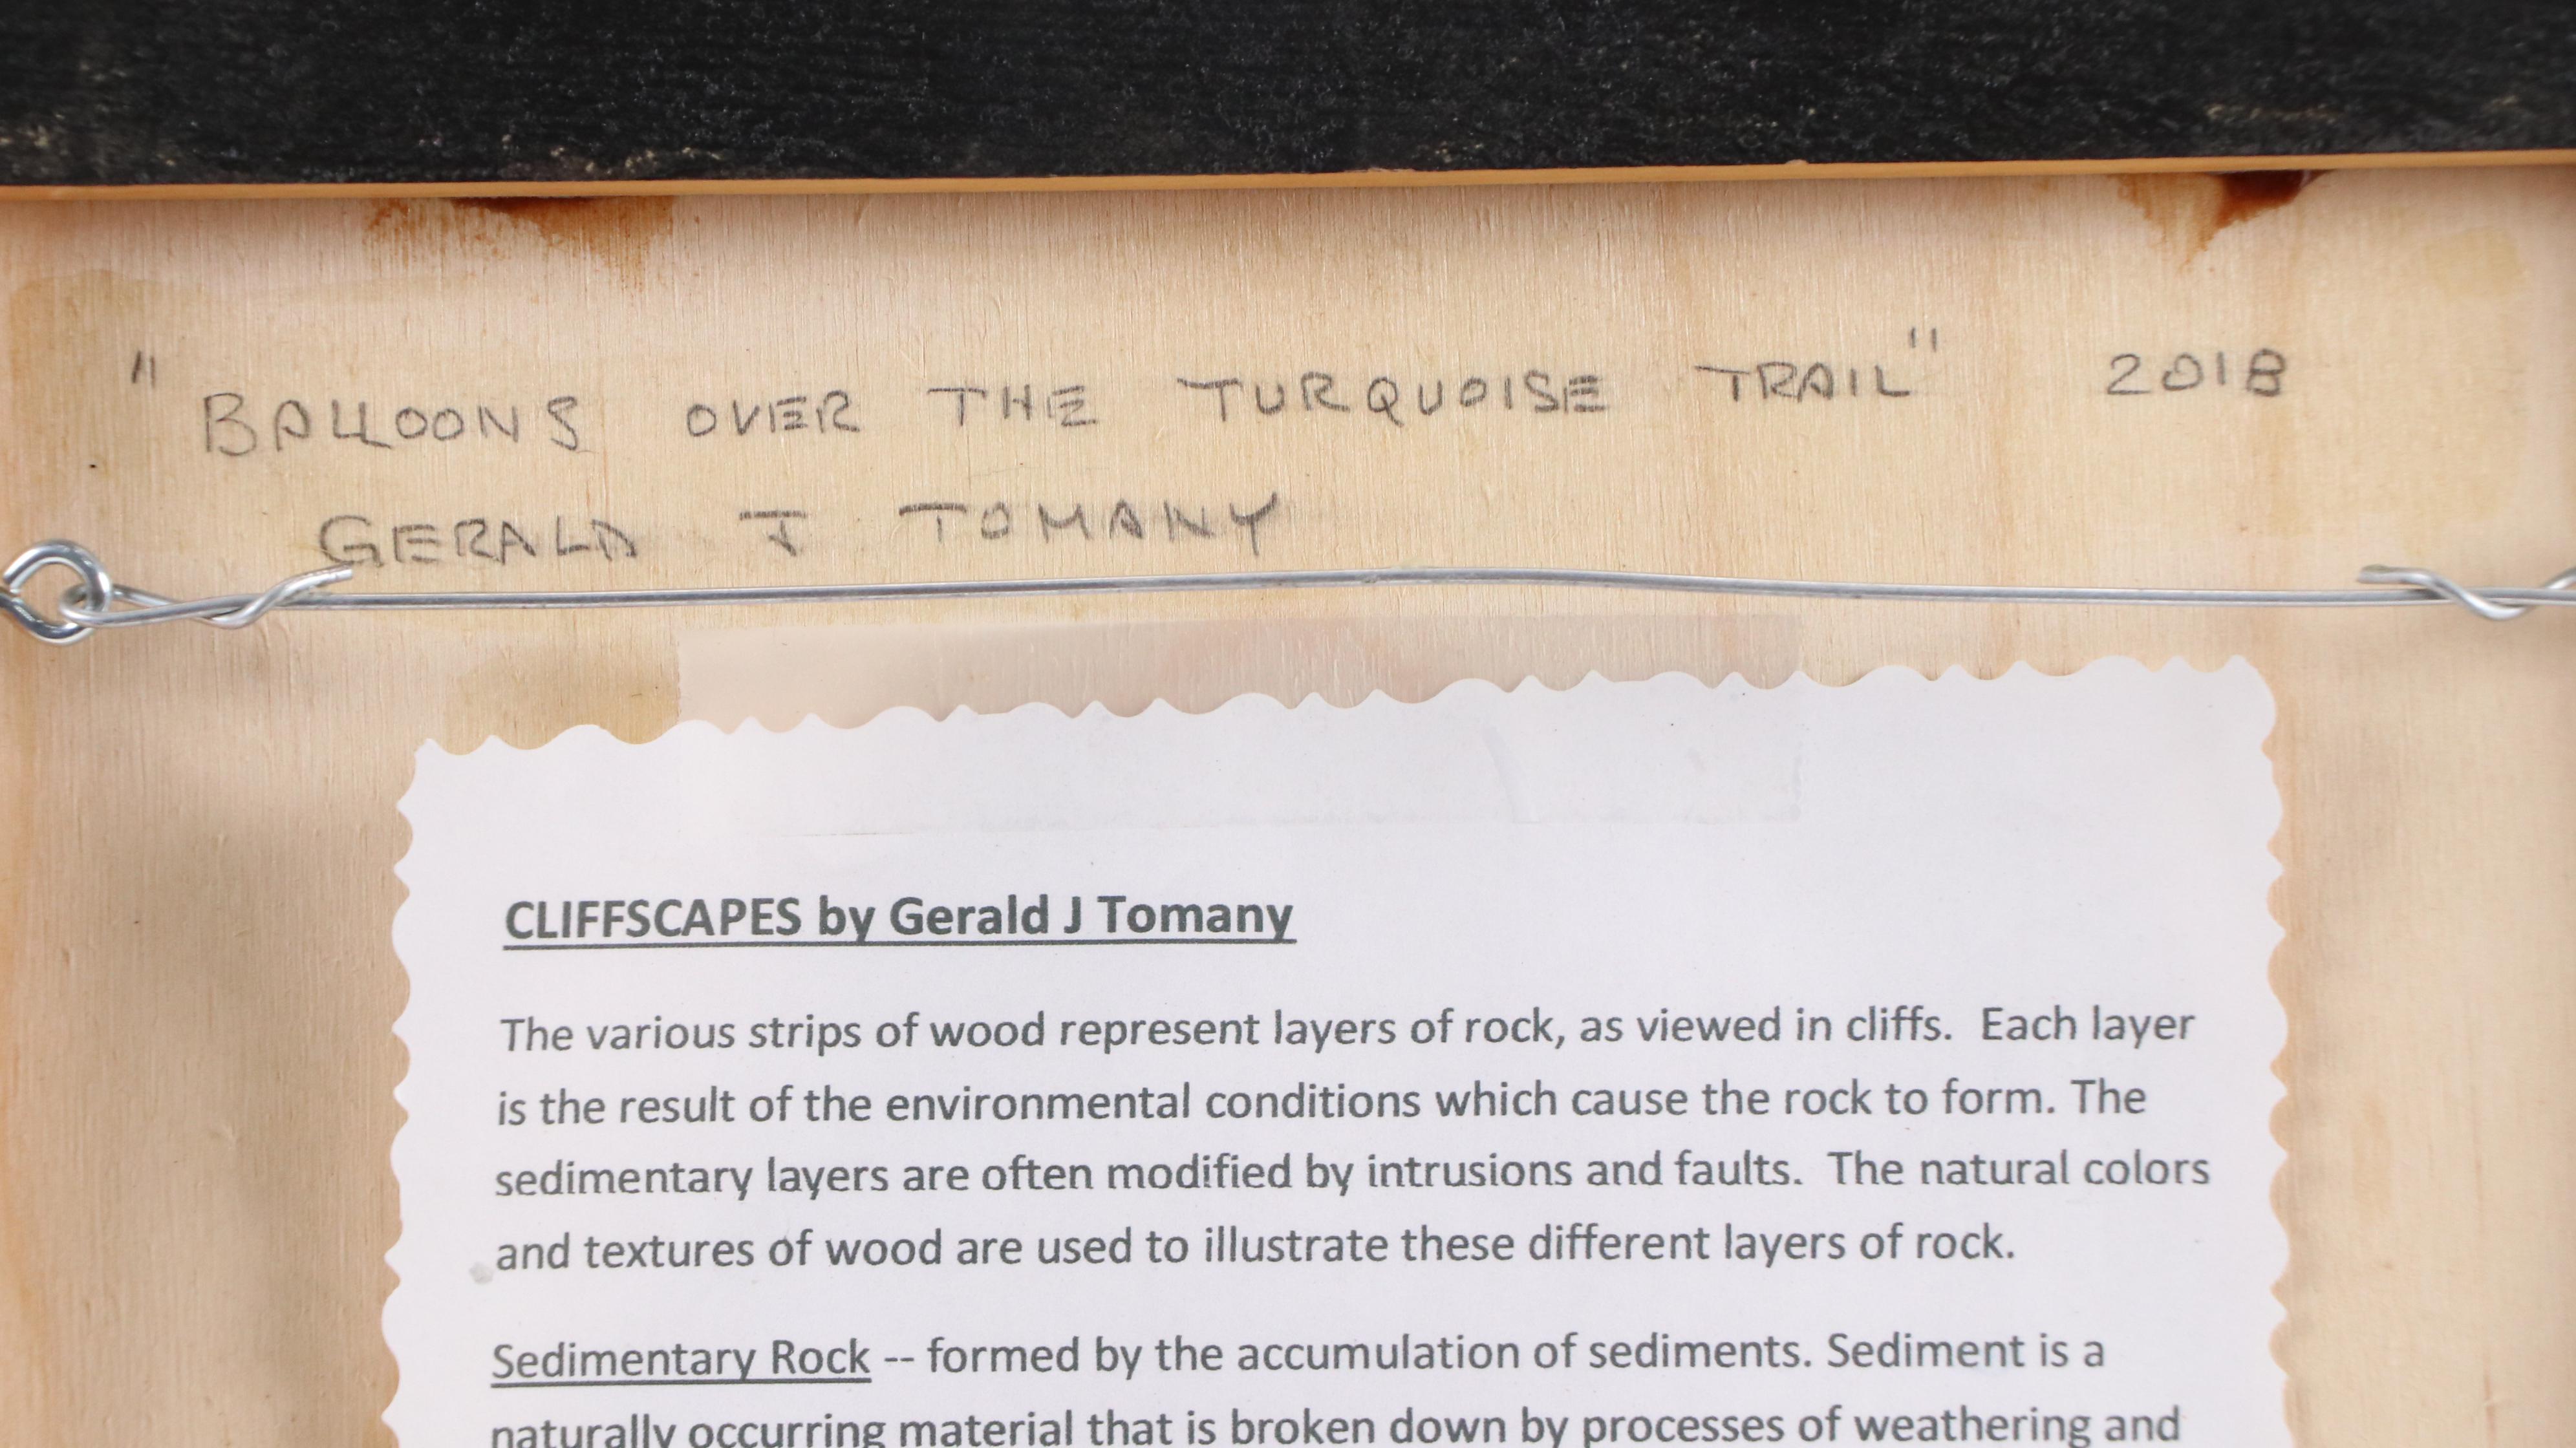 "BALLOONS OVER THE TURQUOISE TRAIL" 2018
GERALD J TOMANY
CLIFFSCAPES by Gerald J Tomany
The various strips of wood represent layers of rock, as viewed in cliffs.  Each layer
is the result of the environmental conditions which cause the rock to form. The
sedimentary layers are often modified by intrusions and faults.  The natural colors
and textures of wood are used to illustrate these different layers of rock.
Sedimentary Rock -- formed by the accumulation of sediments. Sediment is a
naturally occurring material that is broken down by processes of weathering and